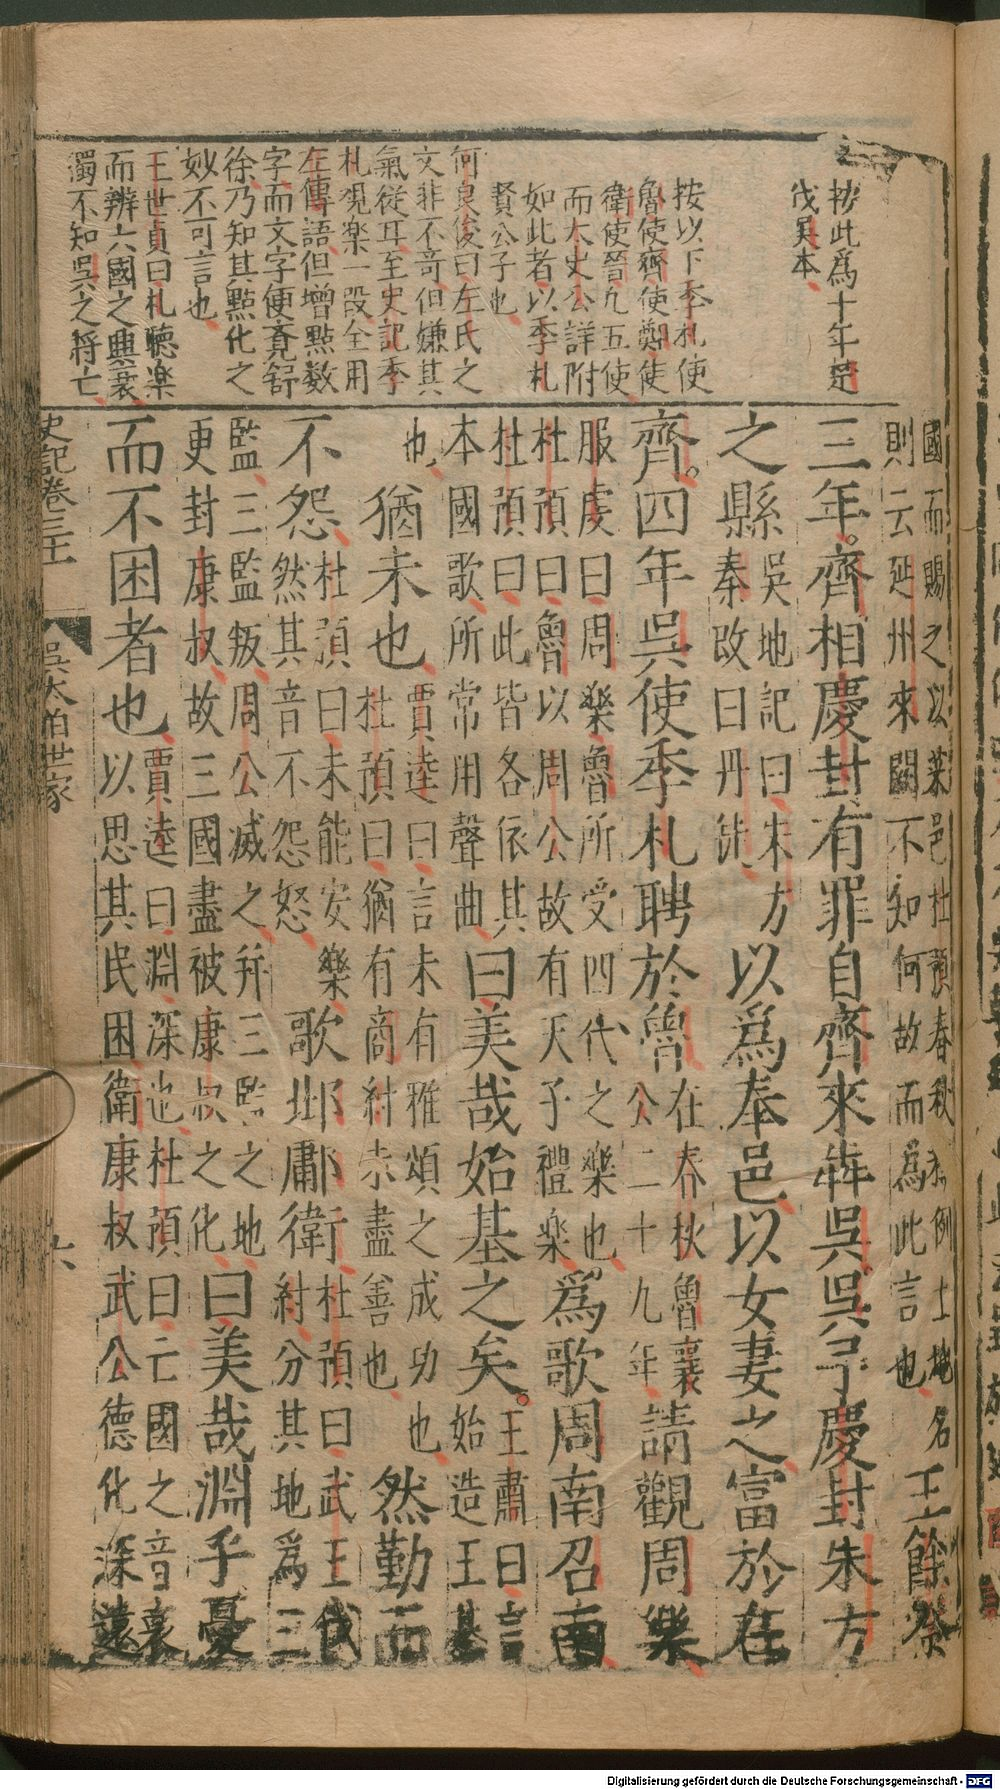 按此爲十年楚
伐吳本
按以下季札使
魯使齊使鄭使
衛使晉凡五使
而太史公詳附
如此者以季札
賢公子也
何良俊曰左氏之
文非不奇但嫌其
氣從耳至史記季
札觀樂一段全用
左傳語但增點數
字而文字便覺舒
徐乃知其點化之
妙不可言也
王世貞曰札聽樂
而辨六國之興衰
獨不知吳之將亡
國而賜之以菜邑杜預春秋釋例土地名
則云延州來闕不知何故而爲此言也
王餘祭
三年齊相慶封有罪自齊來犇吳吳予慶封朱方
之縣
吳地記曰朱方
秦改曰丹徒
以爲奉邑以女妻之富於在
齊四年吳使季札聘於魯
在春秋魯襄
公二十九年
請觀周樂
服虔曰周樂魯所受四代之樂也
杜預曰魯以周公故有天子禮樂
爲歌周南召南
杜預曰此皆各依其
本國歌所常用聲曲
曰美哉始基之矣
王肅曰言
始造王基
也
猶未也
賈逵曰言未有雅頌之成功也
杜預曰猶有商紂未盡善也
然勤而
不怨
杜預曰未能安樂
然其音不怨怒
歌邶鄘衛
杜預曰武王伐
紂分其地爲三
監三監叛周公滅之幷三監之地
更封康叔故三國盡被康叔之化
曰美哉淵乎憂
而不困者也
賈逵曰淵深也杜預曰亡國之音哀
以思其民困衛康叔武公德化深遠
史記卷三十一
吳太伯世家
六
Digitalisierung gefördert durch die Deutsche Forschungsgemeinschaft - DFG